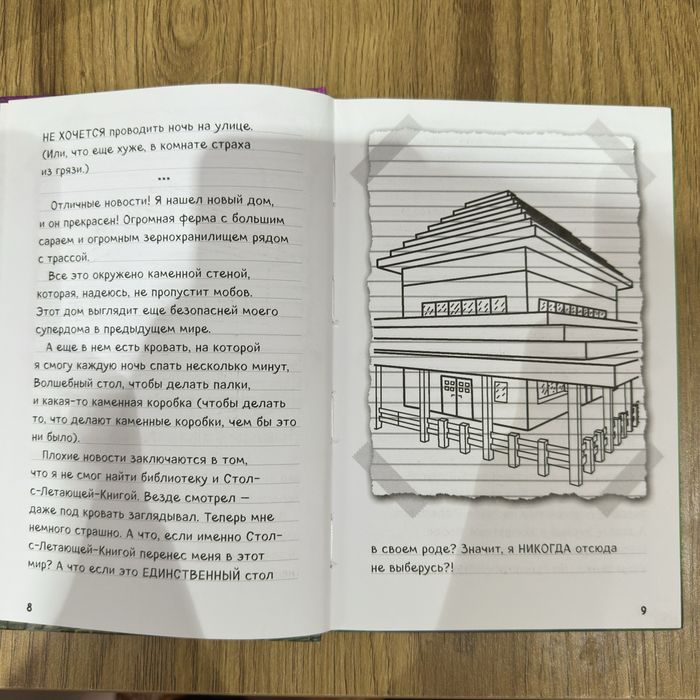 НЕ ХОЧЕТСЯ проводить ночь на улице.
(Или, что еще хуже, в комнате страха
из грязи.)
***
Отличные новости! Я нашел новый дом,
и он прекрасен! Огромная ферма с большим
сараем и огромным зернохранилищем рядом
с трассой.
Все это окружено каменной стеной,
которая, надеюсь, не пропустит мобов.
Этот дом выглядит еще безопасней моего
супердома в предыдущем мире.
А еще в нем есть кровать, на которой
я смогу каждую ночь спать несколько минут,
Волшебный стол, чтобы делать палки,
и какая-то каменная коробка (чтобы делать
то, что делают каменные коробки, чем бы это
ни было).
Плохие новости заключаются в том,
что я не смог найти библиотеку и Стол-
с-Летающей-Книгой. Везде смотрел —
даже под кровать заглядывал. Теперь мне
немного страшно. А что, если именно Стол-
с-Летающей-Книгой перенес меня в этот
мир? А что если это ЕДИНСТВЕННЫЙ стол
8
в своем роде? Значит, я НИКОГДА отсюда
не выберусь?!
9